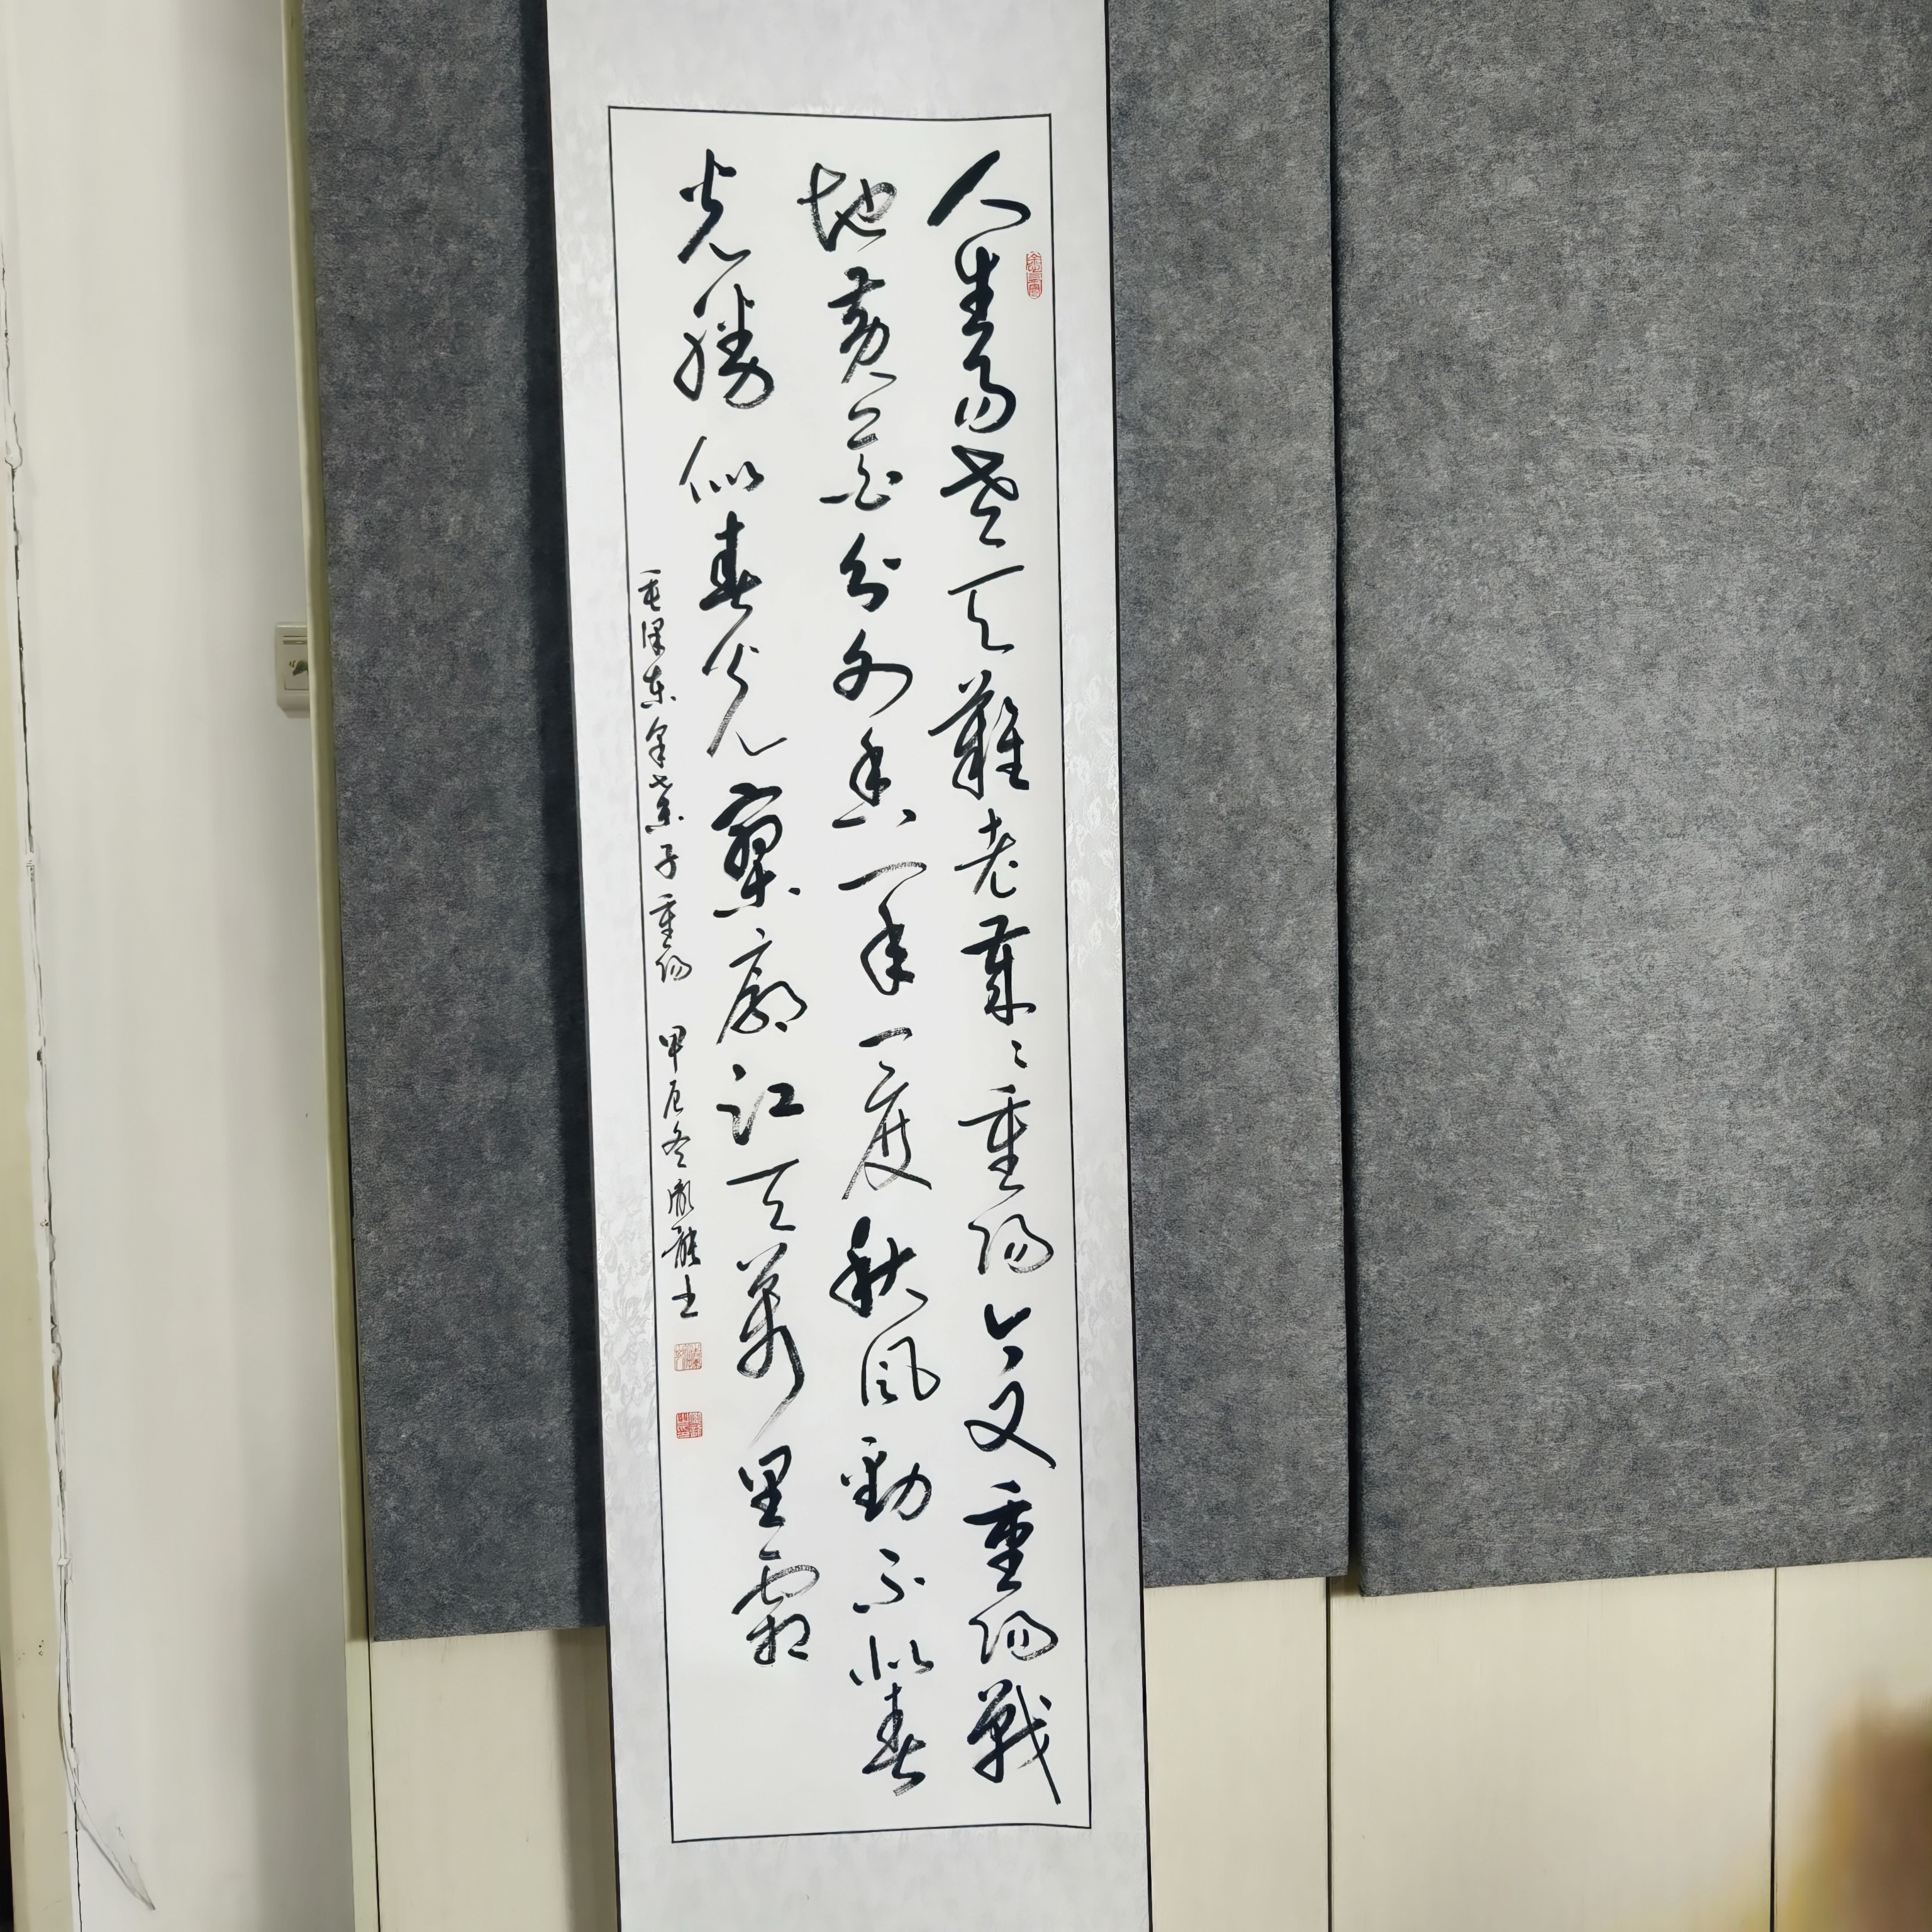 人生易老天難老歲々重陽今又重陽戰
地黄花分外香一年一度秋風勁不似春
光勝似春光寥廓江天萬里霜
毛澤東采桑子重陽 甲辰冬